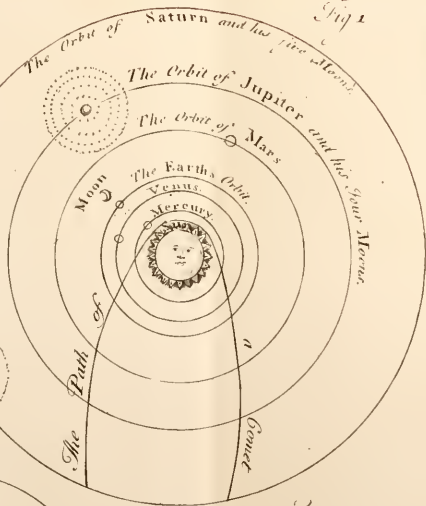 Fig 1
The Orbit of Saturn and his five Moons.
The Orbit of Jupiter and his Four Moons.
The Orbit of Mars
The Earths Orbit.
Moon
Venus.
Mercury.
Sun
The Path of a Comet